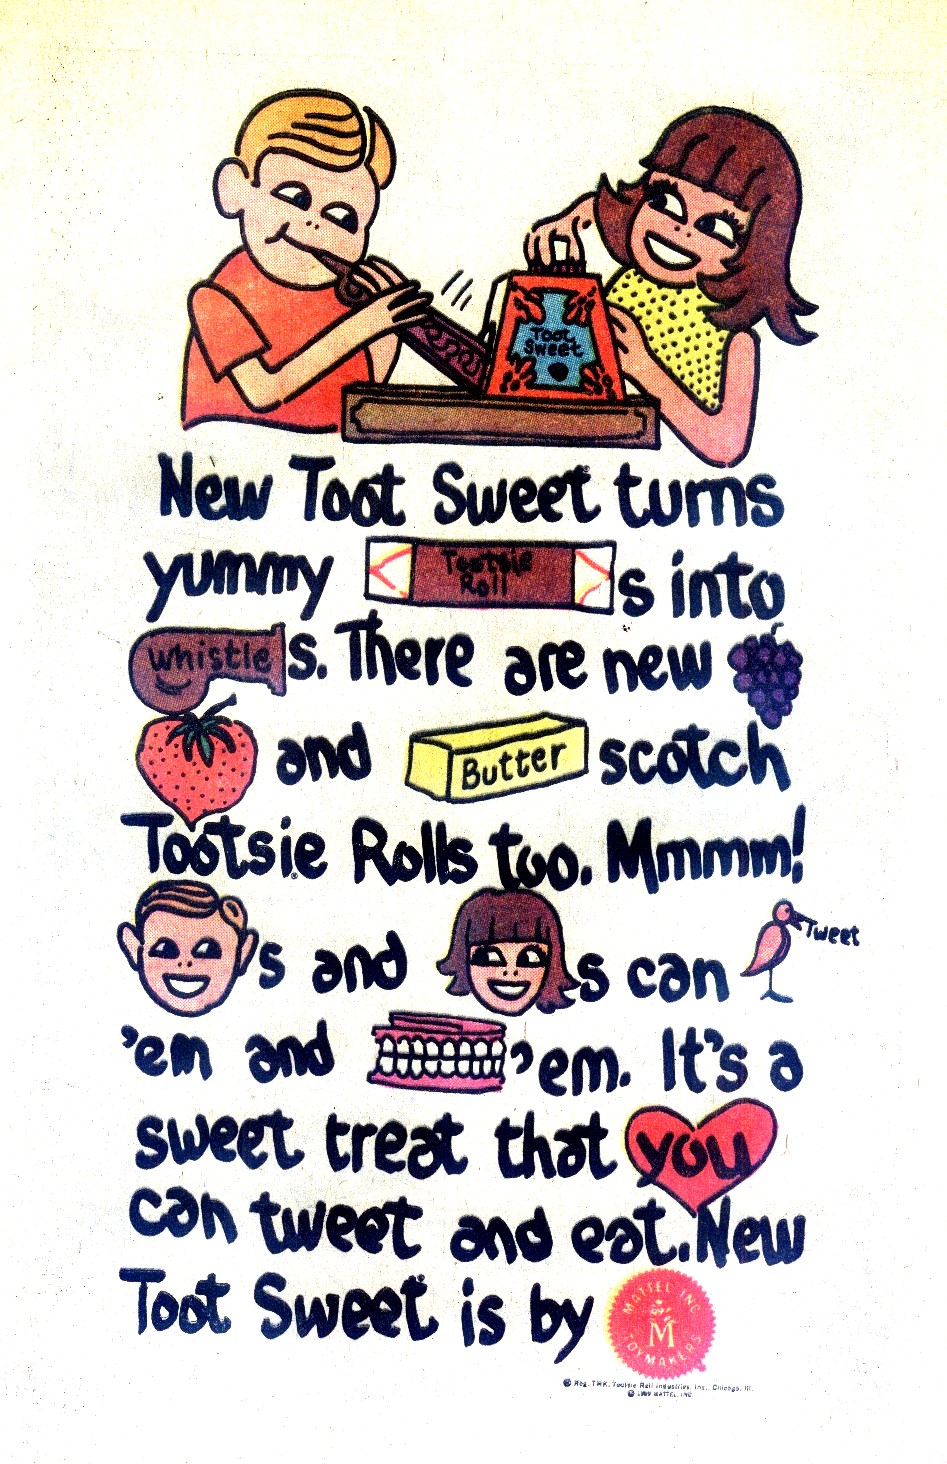 Toot
Sweet
New Toot Sweet turns
yummy Tootsie Roll s into
Whistle s. There are new
and Butter scotch
Tootsie Rolls too. Mmmm!
s and s can Tweet
'em and 'em. It's a
sweet treat that you
can tweet and eat. New
Toot Sweet is by MATTEL INC. M TOYMAKERS
® Reg. TMK. Tootsie Roll Industries, Inc., Chicago, Ill.
© 1969 MATTEL, INC.